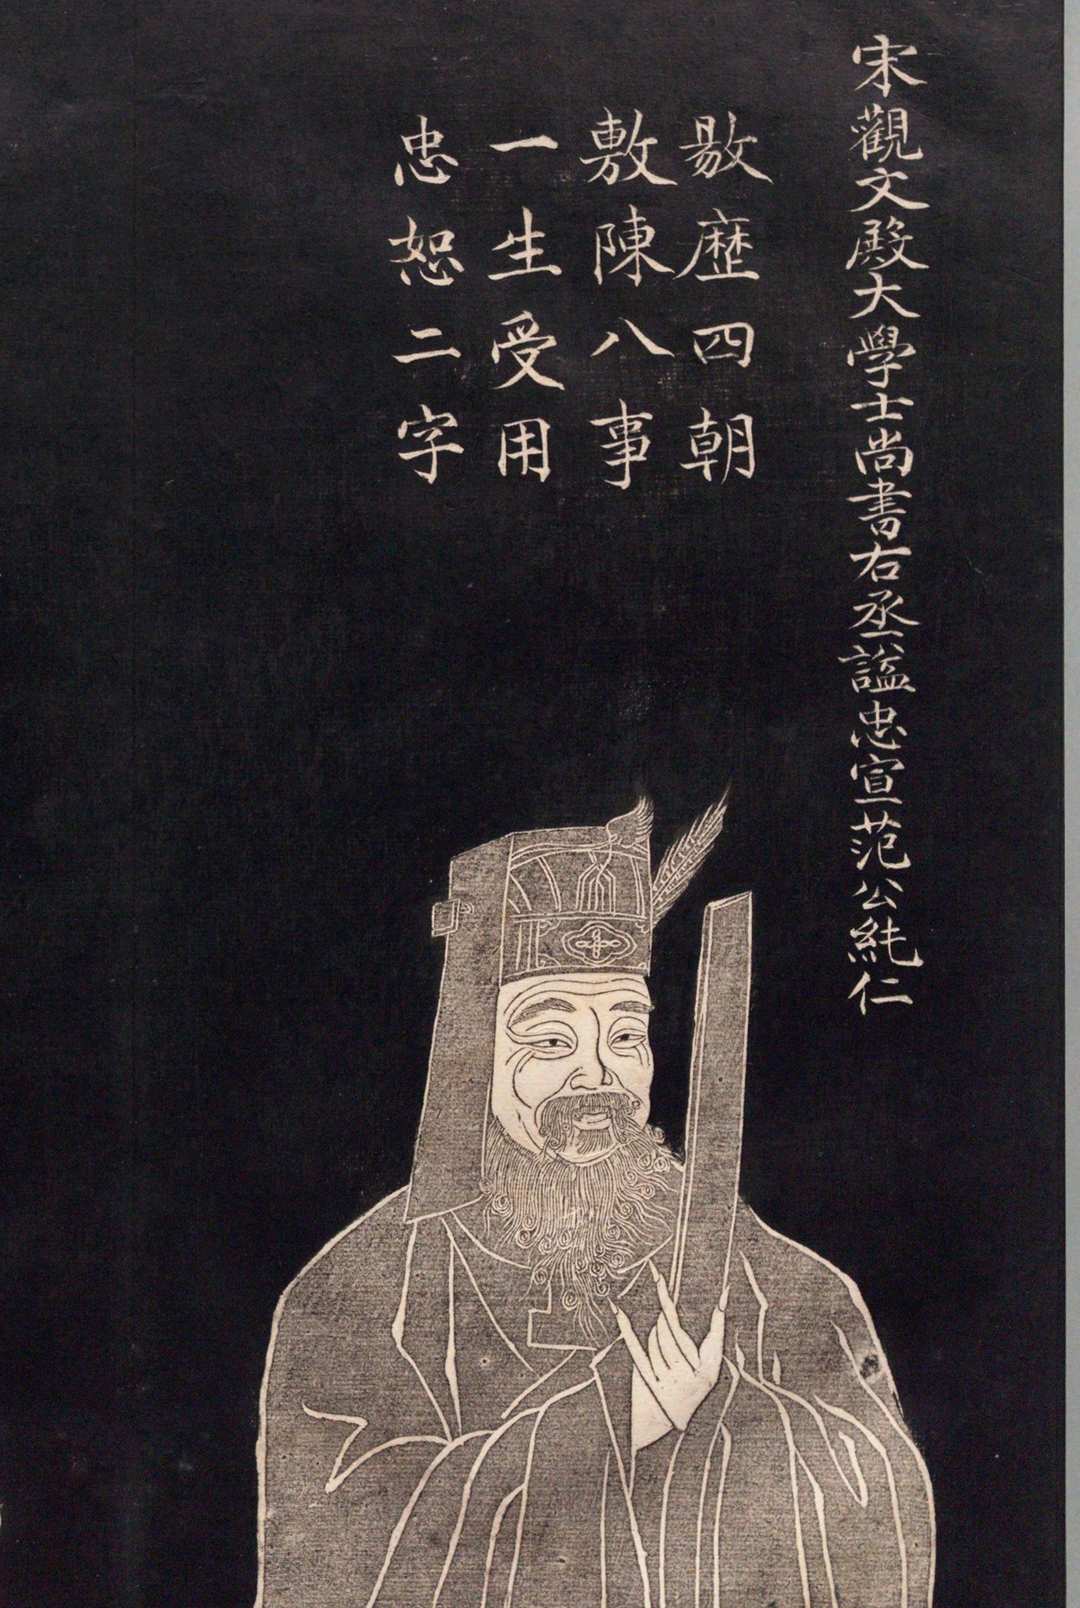 宋觀文殿大學士尚書右丞諡忠宣范公純仁
敭歷四朝
敷陳八事
一生受用
忠恕二字